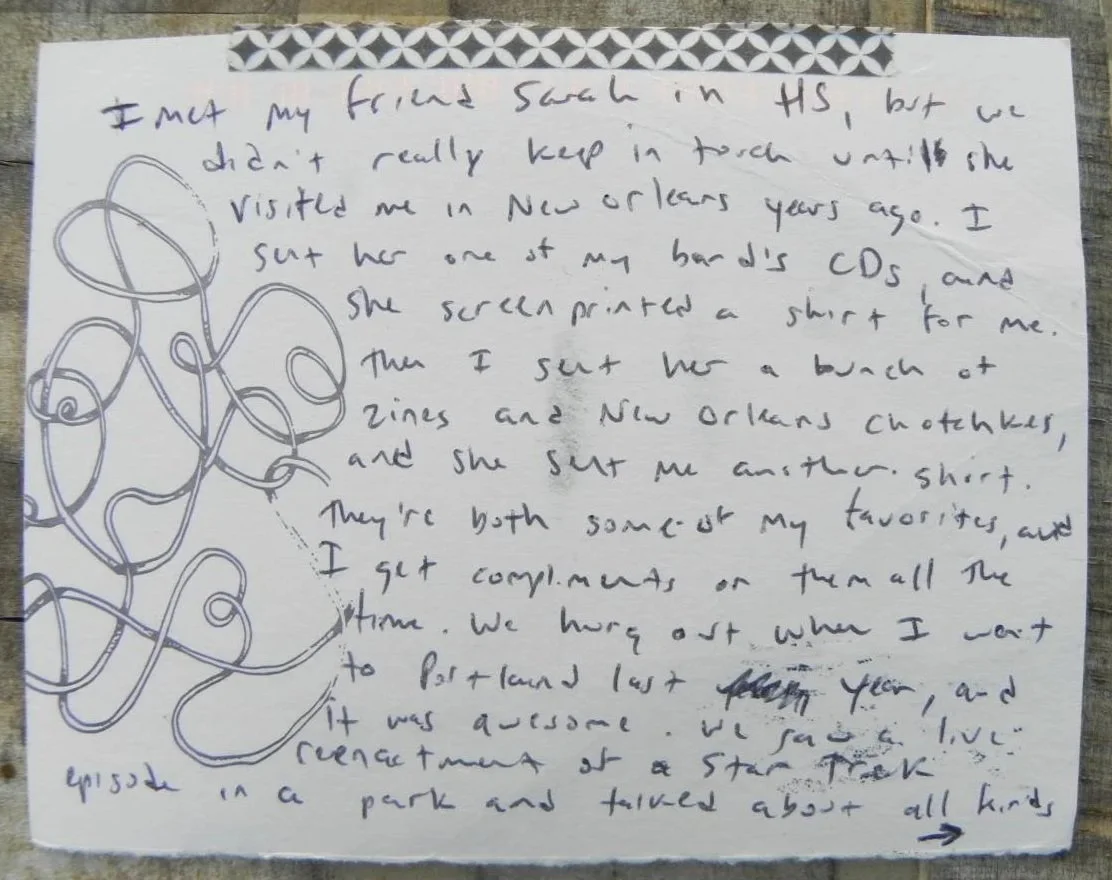 I met my friend Sarah in HS, but we
didn't really keep in touch until she
visited me in New Orleans years ago. I
sent her one of my band's CDs, and
she screenprinted a shirt for me.
Then I sent her a bunch of
zines and New Orleans chotchkes,
and she sent me another shirt.
They're both some of my favorites, and
I get compliments on them all the
time. We hung out when I went
to Portland last year, and
it was awesome. We saw a live
reenactment of a Star Trek
episode in a park and talked about all kinds
→